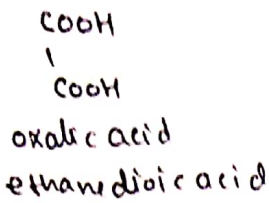 COOH
COOH
oxalic acid
ethanedioic acid